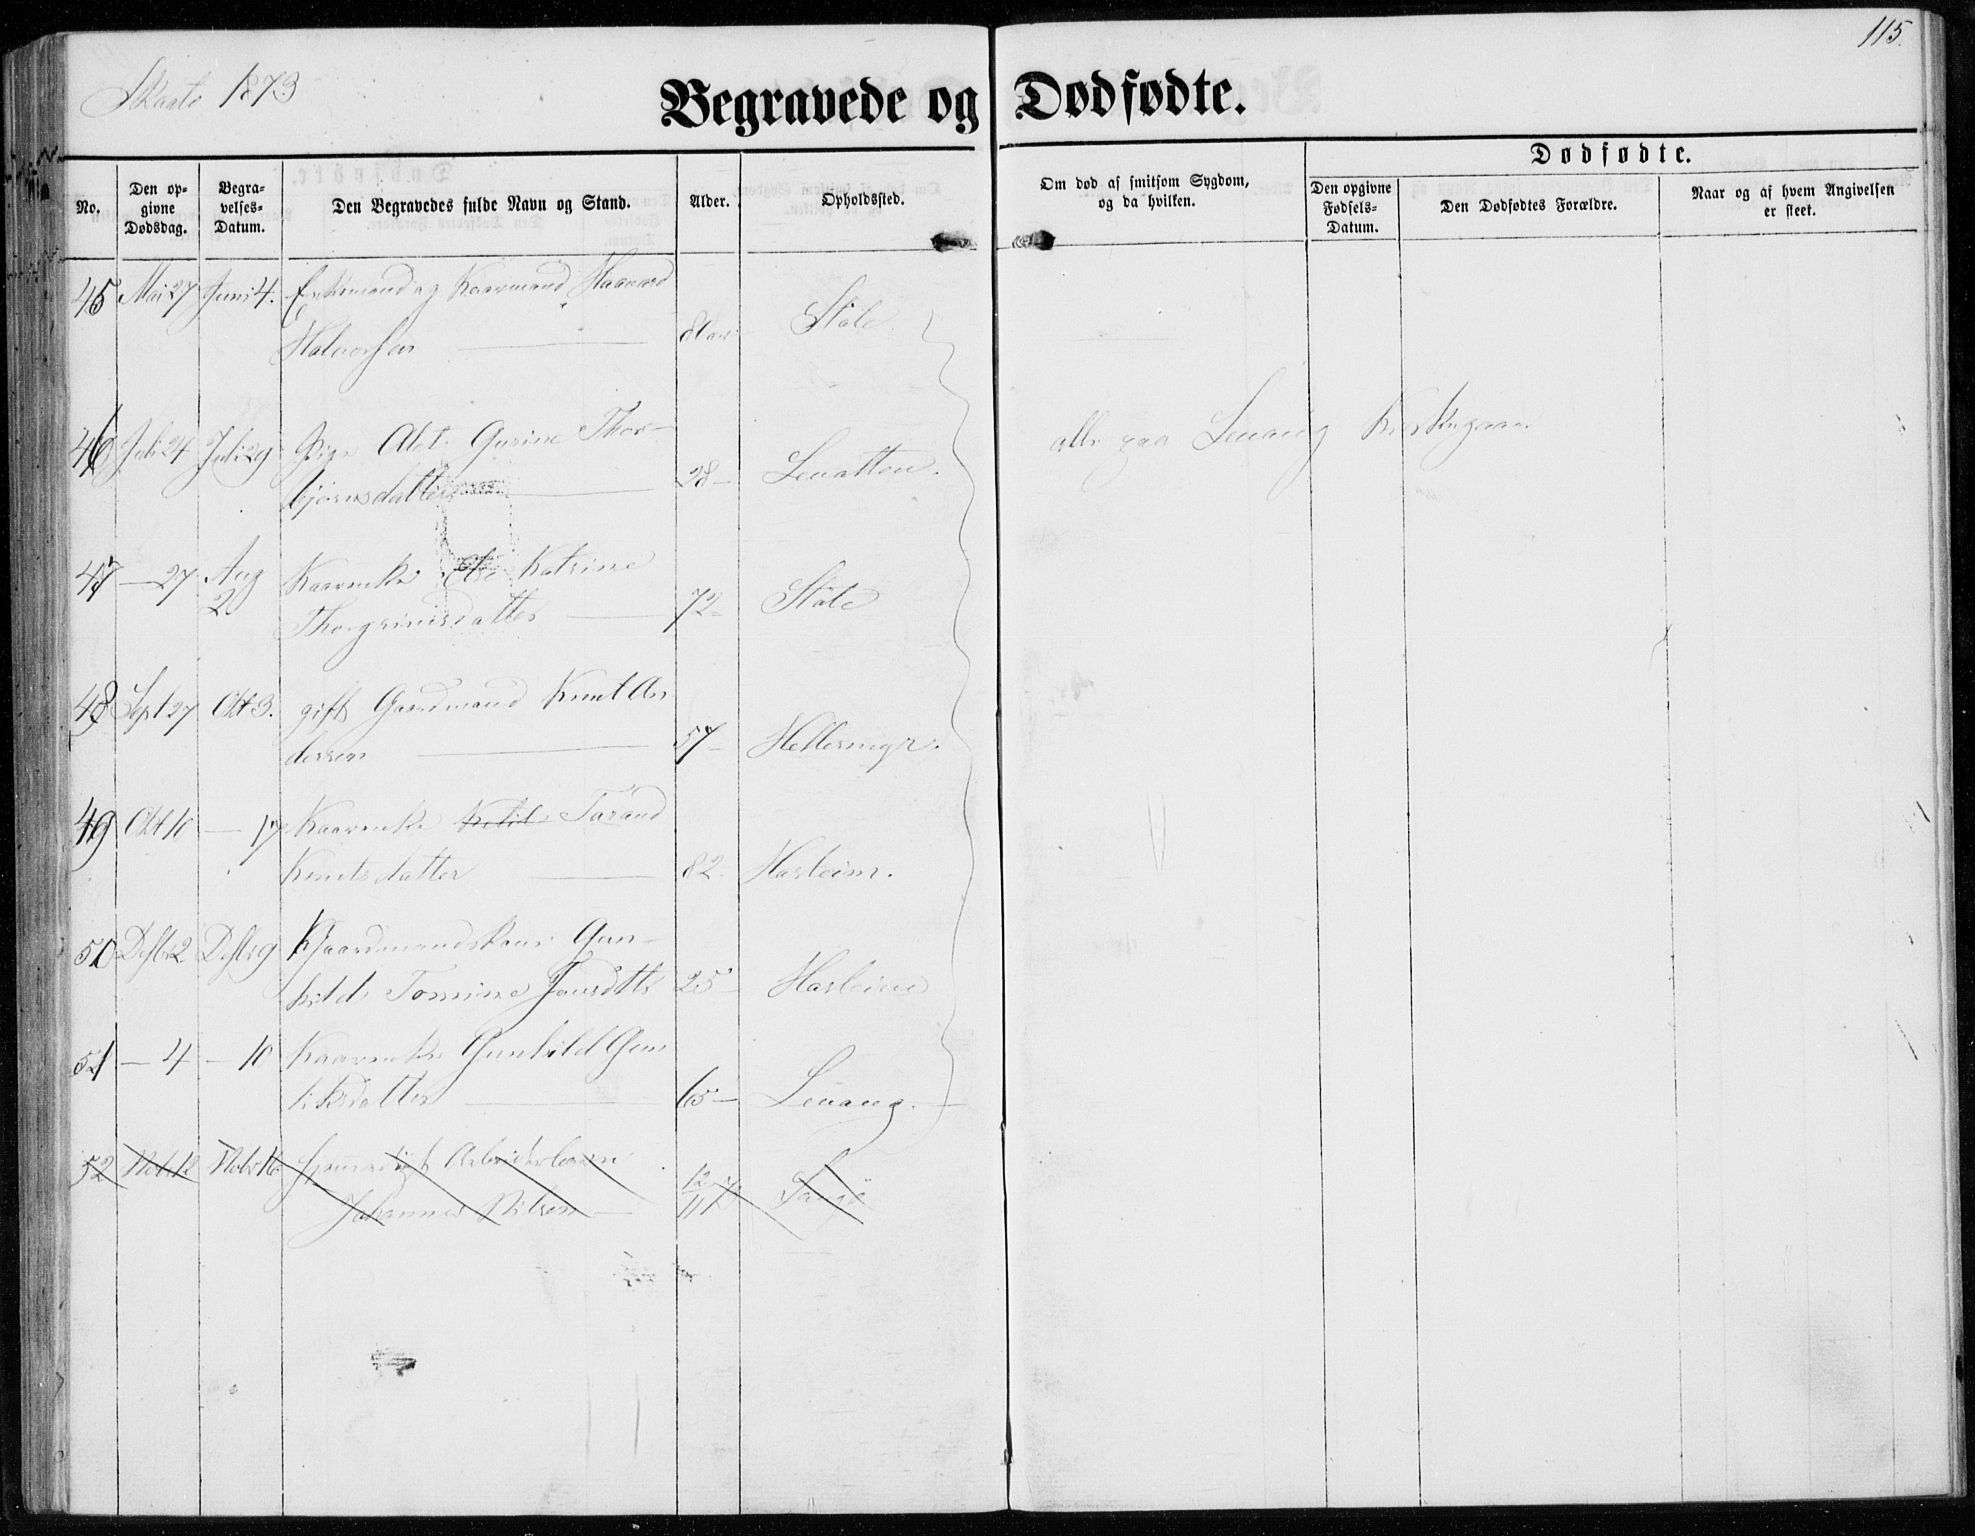 115.
Skaatø 1873
Begravede og Dødfødte.
Dødfødte.
No.
Den op-
givne
Dødsdag.
Begra-
velses-
Datum.
Den Begravedes fulde Navn og Stand.
Alder.
Opholdssted.
Om død af smitsom Sygdom,
og da hvilken.
Den opgivne
Fødsels-
Datum.
Den Dødfødtes Forældre.
Naar og af hvem Angivelsen
er skeet.
45 Mai 27 Juni 4. Enkemand og Kaarmand Haavard
Halvorsen 80 aar Støle
46 Juli 24 Juli 29 Pige Alet Gurine Thor-
bjørnsdatter 28 Levatten.
alle paa Levang Kirkegaar
47 — 27 Aug
2 Kaarenke Katrine
Thorgrimsdatter 72 Støle
48 Sept 27 Okt 3. gift Gaardmand Knut An
dersen 57 Hellermyr.
49 Okt 10 — 17 Kaarenke Ketil Tarand
Knutsdatter 82 Hasleim.
50 Dsbr 2 Dsbr 9 Gaardmandskone Gun-
hild Tomine Jensdttr 25 Hasleim
51 — 4 — 10 Kaarenke Gunhild Gun
liksdatter 65 Levang.
52 Nobr 12 Nobr 16 Arbeiderbarn
Johannes Nilsen 12/11 7 Langø